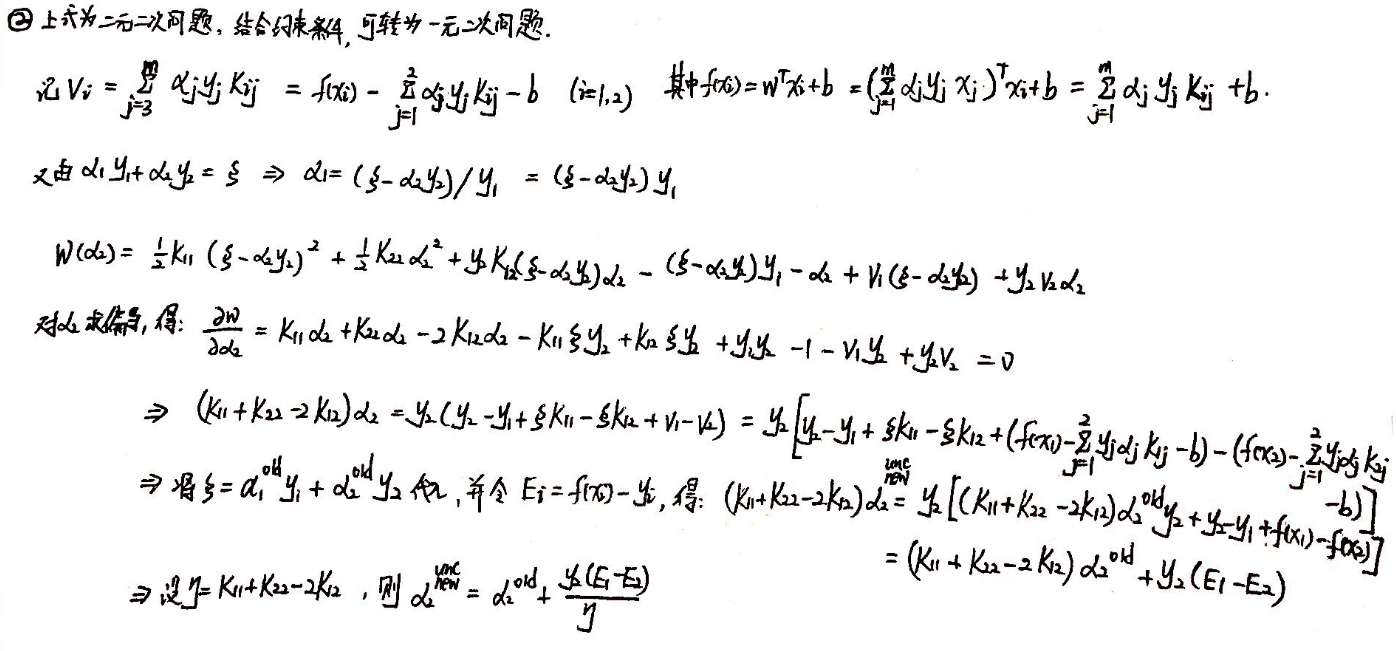 ② 上式为二元二次问题, 结合约束条件, 可转为一元二次问题.
记 Vi = Σ_{j=3}^{m} αj yj Kij = f(xi) - Σ_{j=1}^{2} αj yj Kij - b (i=1,2) 其中 f(xi) = w^T xi + b = (Σ_{j=1}^{m} αj yj xj)^T xi + b = Σ_{j=1}^{m} αj yj Kij + b.
又由 α1 y1 + α2 y2 = ξ ⇒ α1 = (ξ - α2 y2) / y1 = (ξ - α2 y2) y1
W(α2) = 1/2 K11 (ξ - α2 y2)^2 + 1/2 K22 α2^2 + y2 K12 (ξ - α2 y2) α2 - (ξ - α2 y2) y1 - α2 + V1 (ξ - α2 y2) + y2 V2 α2
对 α2 求偏导, 得: ∂W/∂α2 = K11 α2 + K22 α2 - 2 K12 α2 - K11 ξ y2 + K12 ξ y2 + y1 y2 - 1 - V1 y2 + y2 V2 = 0
⇒ (K11 + K22 - 2 K12) α2 = y2 (y2 - y1 + ξ K11 - ξ K12 + V1 - V2) = y2 [y2 - y1 + ξ K11 - ξ K12 + (f(x1) - Σ_{j=1}^{2} yj αj K1j - b) - (f(x2) - Σ_{j=1}^{2} yj αj K2j - b)]
⇒ 将 ξ = α1^old y1 + α2^old y2 代入, 并令 Ei = f(xi) - yi, 得: (K11 + K22 - 2K12) α2^{new unc} = y2 [(K11 + K22 - 2K12) α2^old y2 + y2 - y1 + f(x1) - f(x2)]
= (K11 + K22 - 2 K12) α2^old + y2 (E1 - E2)
⇒ 设 η = K11 + K22 - 2K12 , 则 α2^{new unc} = α2^old + y2 (E1 - E2) / η